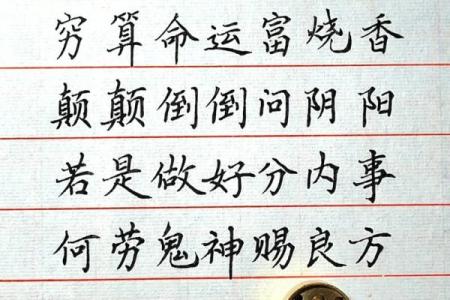 穷算命运富烧香
颠颠倒倒问阴阳
若是做好分内事
何劳鬼神赐良方